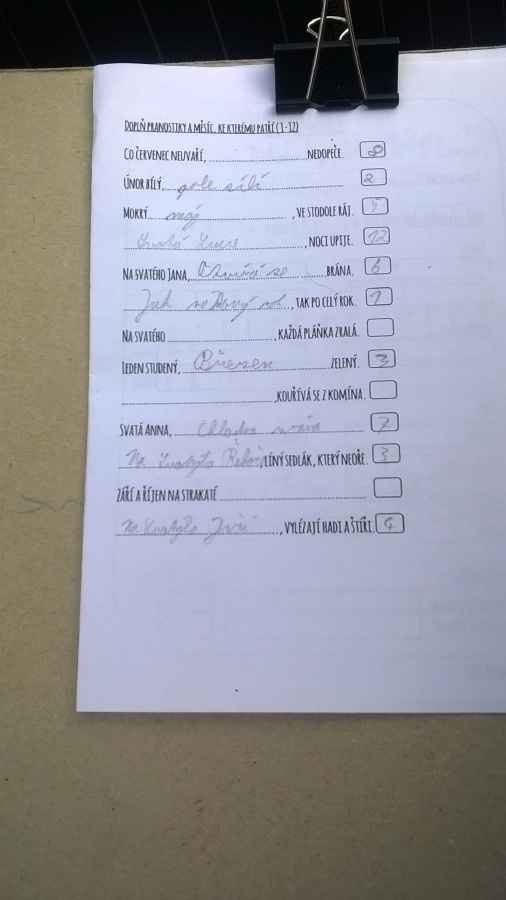 DOPLŇ PRANOSTIKY A MĚSÍC, KE KTERÉMU PATŘÍ (1-12)
CO ČERVENEC NEUVAŘÍ, NEDOPEČE. 8
ÚNOR BÍLÝ, pole sílí 2
MOKRÝ máj, VE STODOLE RÁJ. 5
Svatá Lucie, NOCI UPIJE. 12
NA SVATÉHO JANA, otvírá se BRÁNA. 6
Jak na Nový rok, TAK PO CELÝ ROK. 1
NA SVATÉHO, KAŽDÁ PLÁŇKA ZRALÁ.
LEDEN STUDENÝ, Březen ZELENÝ. 3
,KOUŘÍVÁ SE Z KOMÍNA.
SVATÁ ANNA, chladna z rána 7
Na Svatýho Řehoře, LÍNÝ SEDLÁK, KTERÝ NEOŘE. 3
ZÁŘÍ A ŘÍJEN NA STRAKATÉ
Na Svatýho Jiří, VYLÉZAJÍ HADI A ŠTÍŘI. 4